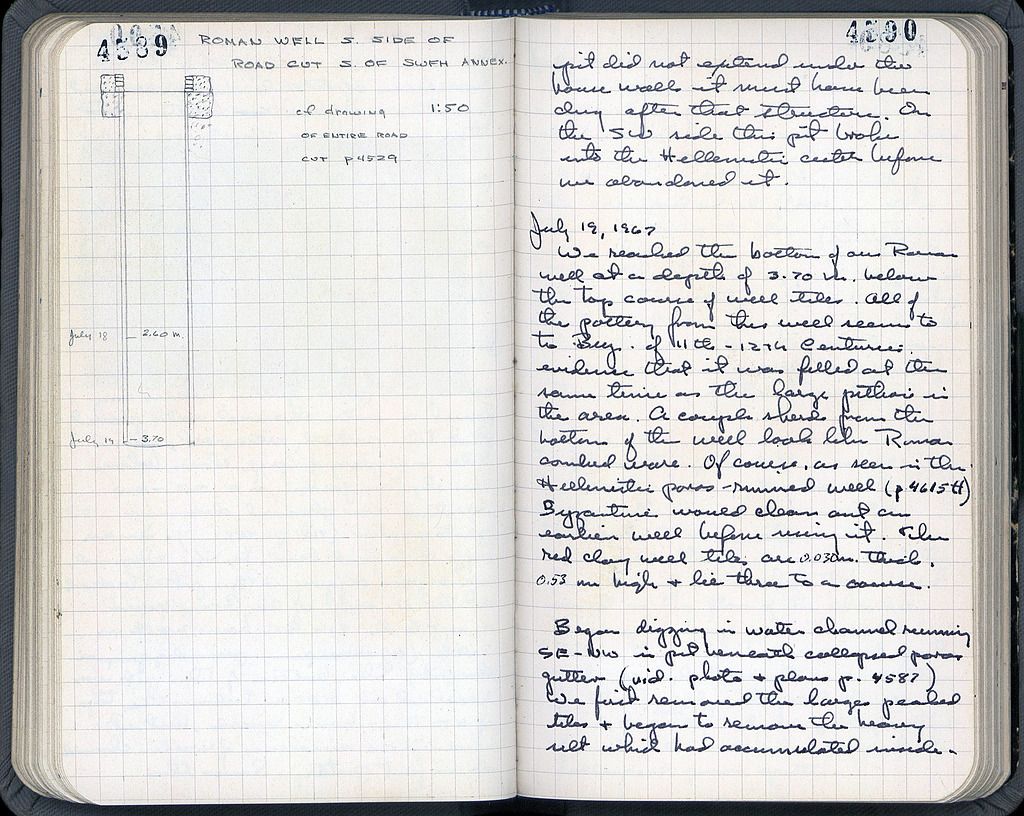 4589
ROMAN WELL S. SIDE OF
ROAD CUT S. OF SWFH ANNEX.
cf drawing 1:50
OF ENTIRE ROAD
CUT p4529
July 18 2.60 m.
July 19 3.70
4590
pit did not extend under the
house walls it must have been
dug after that structure. On
the SW side this pit broke
into the Hellenistic center before
we abandoned it.
July 19, 1967
We reached the bottom of our Roman
well at a depth of 3.70 m. below
the top course of well tiles. All of
the pottery from this well seems to
to Byz. of 11th - 12th Centuries.
evidence that it was filled at the
same time as the large pithoi in
the area. A couple sherds from the
bottom of the well look like Roman
combed ware. Of course, as seen in the
Hellenistic poros-rimmed well (p 4615 ff)
Byzantines would clean out an
earlier well before using it. The
red clay well tiles are 0.030m. thick,
0.53 m high + lie three to a course.
Began digging in water channel running
SE-NW in pit beneath collapsed poros
gutter (vid. photo + plans p. 4587)
We first removed the large peaked
tiles + began to remove the heavy
silt which had accumulated inside.